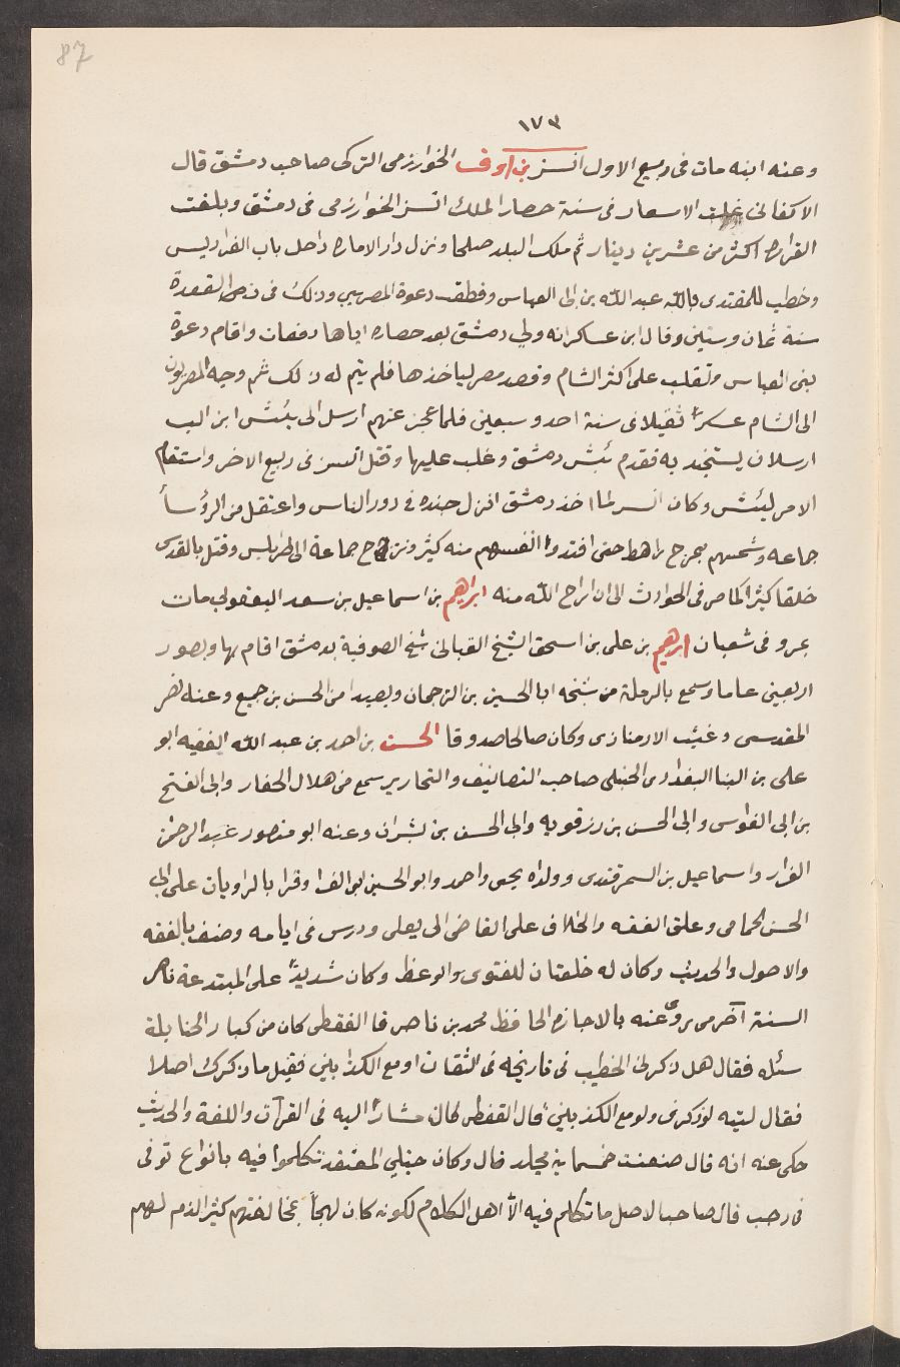 87
١٧٣
وعنه ابنه مات فى ربيع الاول اتسز بن اوف الخوارزمى التركى صاحب دمشق قال
الاكفانى غلت الاسعار فى سنة حصار الملك اتسز الخوارزمى فى دمشق وبلغت
الغرارة اكثر من عشرين دينار ثم ملك البلد صلحا ونزل دار الامارة داخل باب الفراديس
وخطب للمقتدى بالله عبد الله بن الى العباس وقطف دعوة المصريين وذلك فى ذى القعدة
سنة ثمان وستين وقال ابن عساكر انه ولي دمشق بعد حصاره اياها دفعات واقام دعوة
بنى العباس وتغلب على اكثر الشام وقصد مصر لياخذها فلم يتم له ذلك ثم وجه المصريون
الى الشام عسكراً ثقيلا فى سنة احد وسبعين فلما عجز عنهم ارسل الى تتش ابن الب
ارسلان يستنجد به فقدم تتش دمشق وغلب عليها وقتل اتسز فى ربيع الاخر واستقام
الامر لتتش وكان اتسز لما اخذ دمشق انزل جنده فى دور الناس واعتقل من الرؤساً
جماعه وشمسهم بمرج راهط حتى افتدوا انفسهم منه كثير ونزح جماعة الى طرابلس وقتل بالقدس
خلقا كثيرا كما مر فى الحوادث الى ان اراح الله منه ابراهيم بن اسماعيل بن سعد اليعقوبي مات
بمرو فى شعبان ابرهيم بن على بن اسحق الشيخ القبانى شيخ الصوفية بدمشق اقام بها وبصور
اربعين عاما وسمع بالرملة من شيخه ابا الحسين بن الترجمان وبصيدا من الحسن بن جميع وعنه نصر
المقدسى وغيث الارمنازى وكان صالحا صدوقا الحسن بن احمد بن عبد الله الفقيه ابو
على بن البنا البغدادى الحنبلى صاحب التصانيف والتحارير سمع من هلال الحفار وابى الفتح
بن ابى الفوارس وابى الحسن بن رزقويه وابى الحسن بن بشران وعنه ابو منصور عبد الرحمن
القزاز واسماعيل بن السمرقندى وولداه يحيى واحمد وابو الحسين ابو الفرا وقرا بالراويات على ابى
الحسن الحمامى وعلق الفقه والخلاف على القاضى ابى يعلى ودرس فى ايامه وصنف بالفقه
والاصول والحديث وكان له خلقتان للفتوى والوعظ وكان شديداً على المبتدعة ناصر
السنة آخر من روى عنه بالاجازة الحافظ محمد بن ناصر قا القفطى كان من كبار الحنابلة
سئله فقال هل ذكرنى الخطيب فى تاريخه فى الثقات او مع الكذابين فقيل ما ذكرك اصلا
فقال ليته لو ذكرنى ولو مع الكذابين قال القفطى كان مشاراً اليه فى القرآن واللغة والحديث
حكى عنه انه قال صنعت خمسمائة مجلد قال وكان حنبلي المعتقد تكلموا فيه بانواع توفى
فى رجب قال صاحب الاصل ما تكلم فيه الا اهل الكلام لكونه كان لهجاً بمخالفتهم كثير الذم لهم